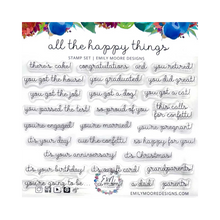 all the happy things
STAMP SET | EMILY MOORE DESIGNS
there's cake! congratulations and you retired!
you got the house! you graduated! you did great!
you got the job! you got a dog! you got a cat!
you passed the test! so proud of you this calls for confetti!
you're engaged! you're married! you're pregnant!
it's your day! cue the confetti! so happy for you!
it's your anniversary! it's Christmas!
it's your birthday! it's a girl! grandparents!
you're going to be it's a boy! a dad! parents!
EMILYMOOREDESIGNS.COM